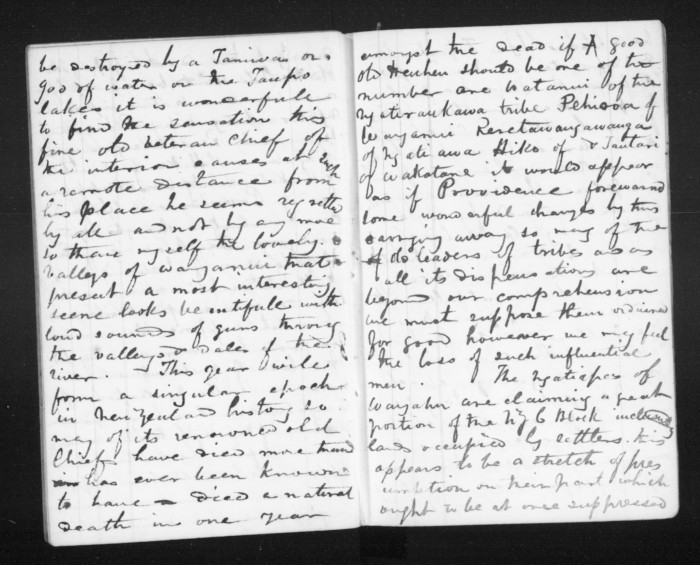 be destroyed by a Taniwa or
god of water on the Taupo
lakes it is wonderfull
to find the sensation this
fine old veteran chief of
the interior causes at such
a remote distance from
his place he seems regretted
by all and not by any more
so than myself the lovely
valleys of wanganui that
present a most interesting
scene looks beautifull with
loud sounds of guns through
the valleys & dales of the
river. — This year will
form a singular epoch
in New Zealand history so
many of its renowned old
Chiefs have died more than
has ever been known
to have died a natural
death in one year
amongst the dead if A good
old Heuheu should be one of the
number are Watanui of the
Ngateraukawa tribe Pehi
Wanganui Reretawangawanga
of Ngatiawa Hiko of
of Wakatane it would appear
as if Providence forewarnd
some wonderful changes by this
carrying away so many of the
old leaders of tribes as
all its dispensations are
beyond our comprehension
we must suppose them ordained
for good however we may feel
the loss of such influential
men. The Ngatiapas of
Wangahu are claiming a great
portion of the No 6 Block including
lands occupied by settlers. this
appears to be a stretch of pres
umption on their part which
ought to be at once suppressed